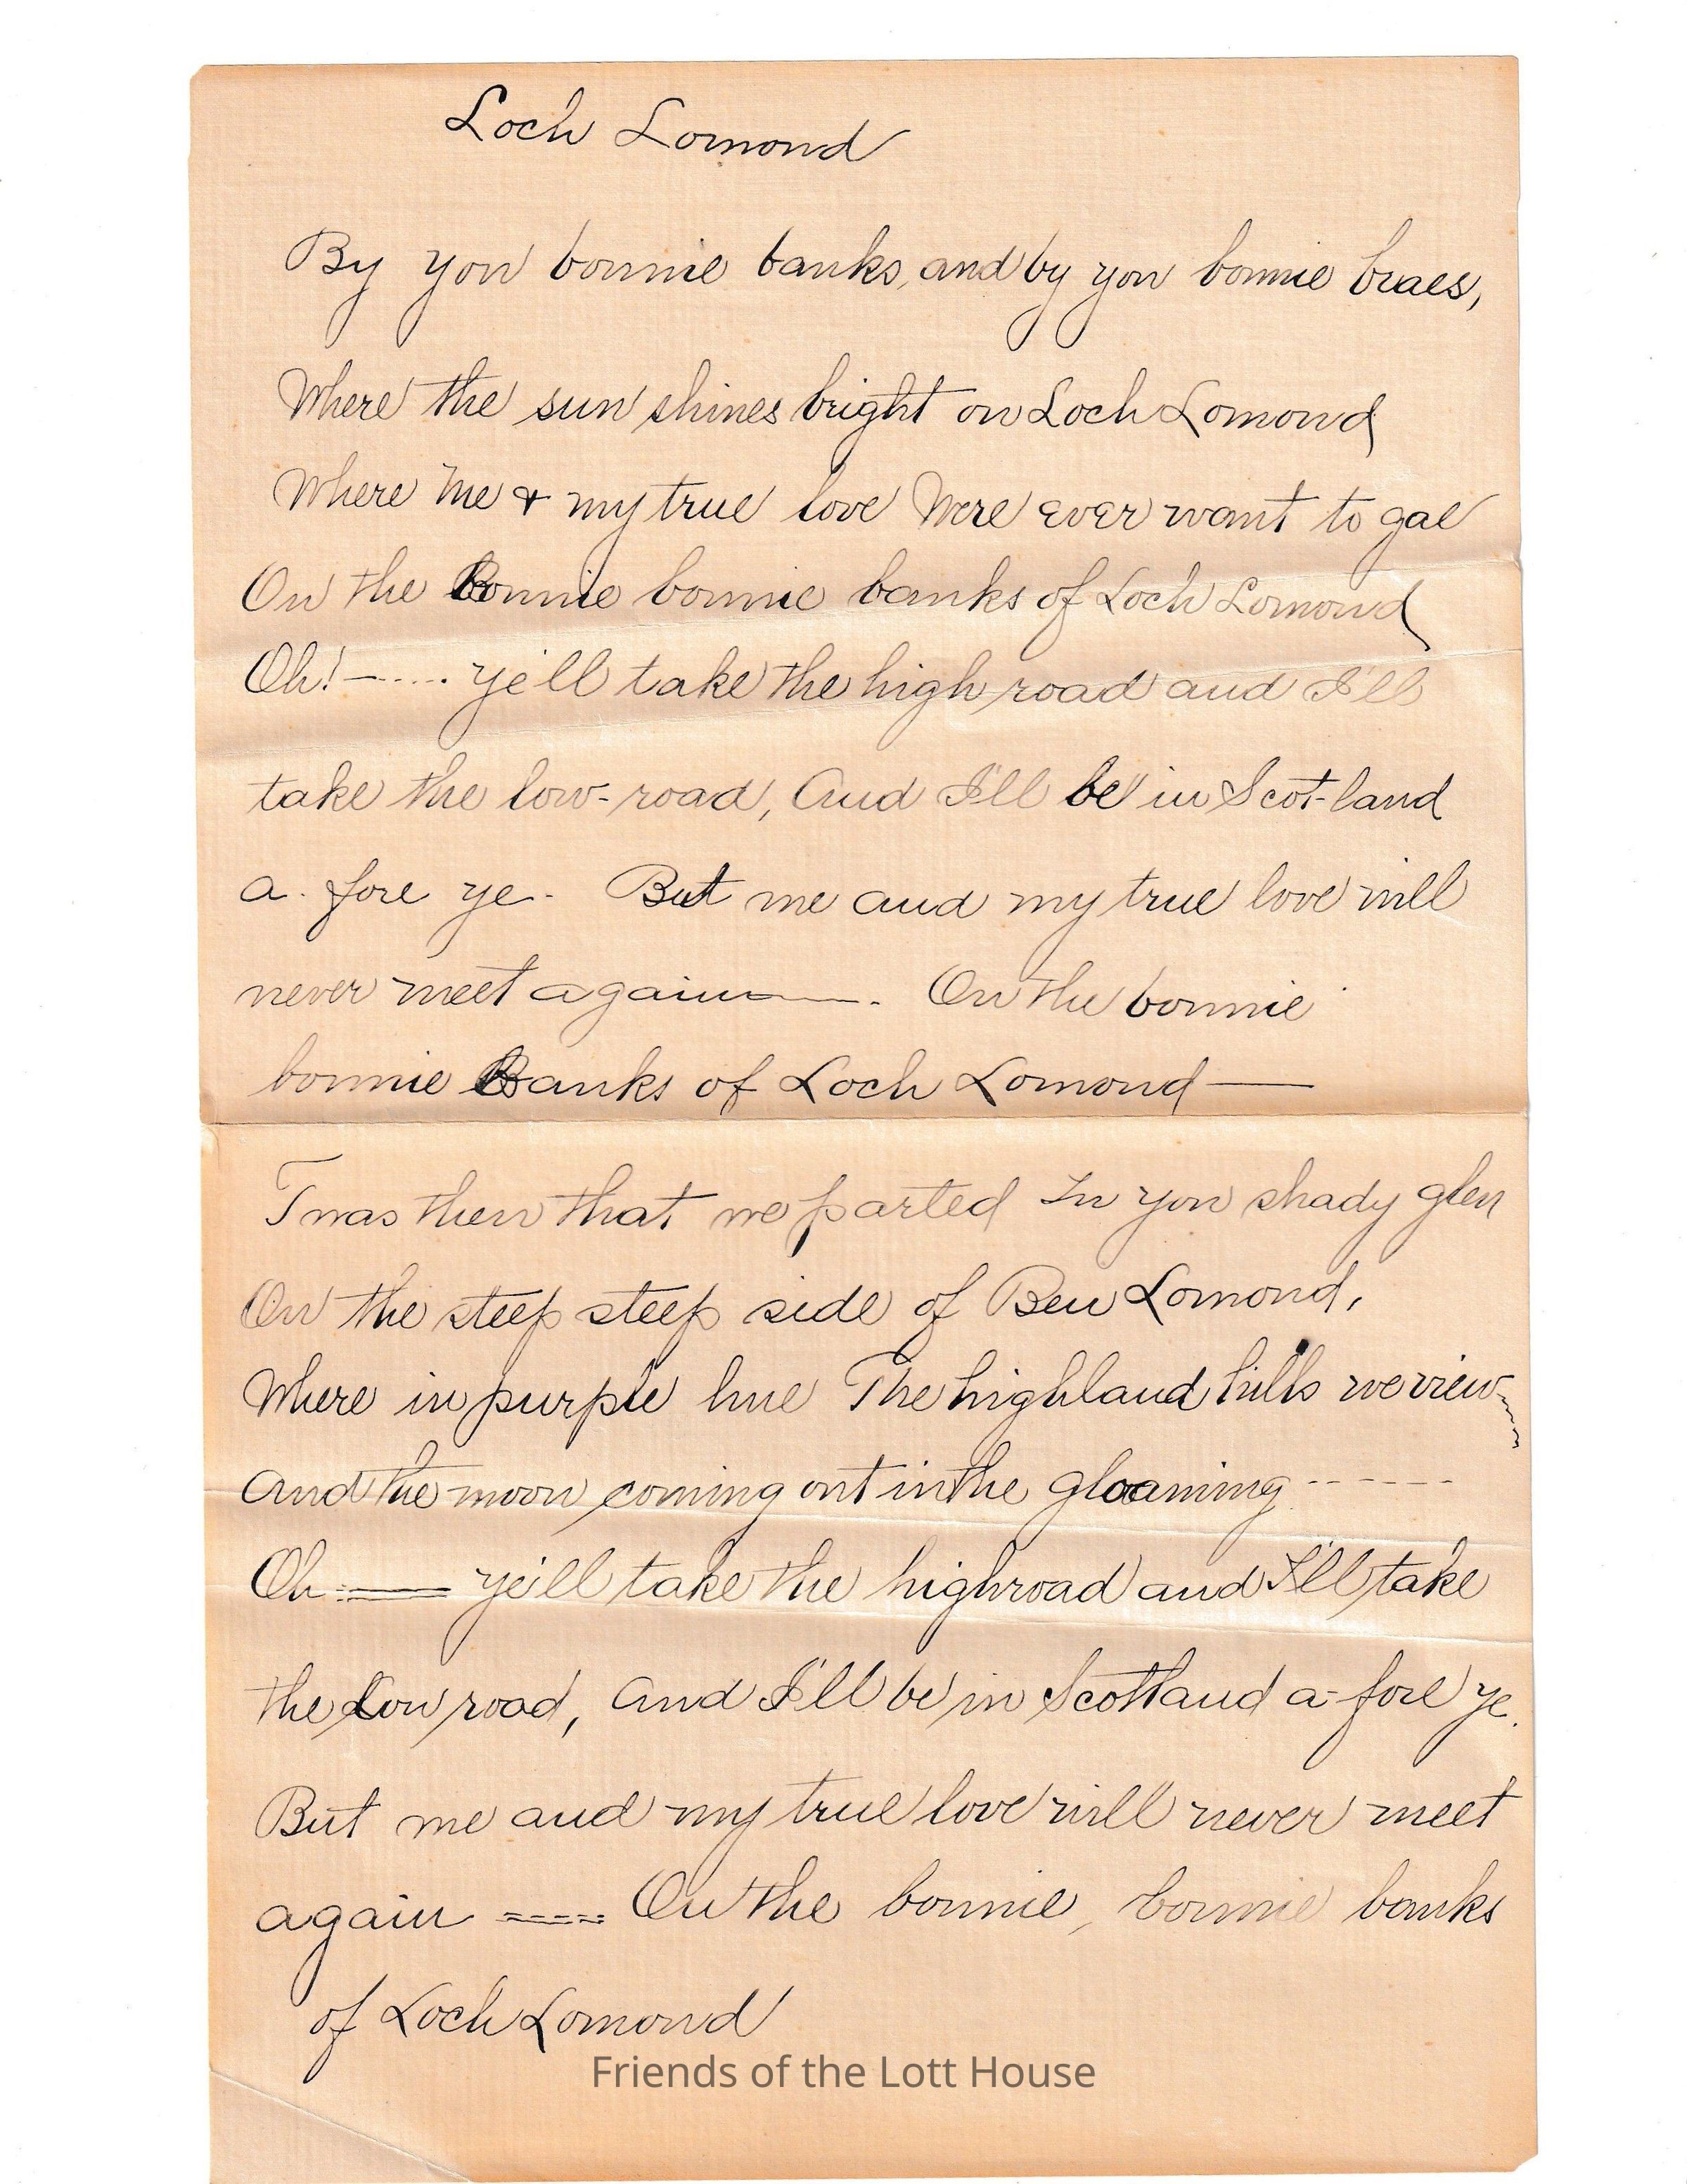 Loch Lomond
By yon bonnie banks, and by yon bonnie braes,
Where the sun shines bright on Loch Lomond
Where me & my true love Were ever want to gae
On the Bonnie bonnie banks of Loch Lomond
Oh! —.... ye'll take the high road and I'll
take the low-road, And I'll be in Scot-land
a. fore ye- But me and my true love will
never meet again ——. On the bonnie
bonnie Banks of Loch Lomond —
Twas then that we parted In yon shady glen
On the steep steep side of Ben Lomond,
Where in purple hue The highland hills we view
And the moon coming out in the gloaming ------
Oh :== ye'll take the highroad and I'll take
the Low road, And I'll be in Scotland a-fore ye.
But me and my true love will never meet
again ==== On the bonnie, bonnie banks
of Loch Lomond
Friends of the Lott House